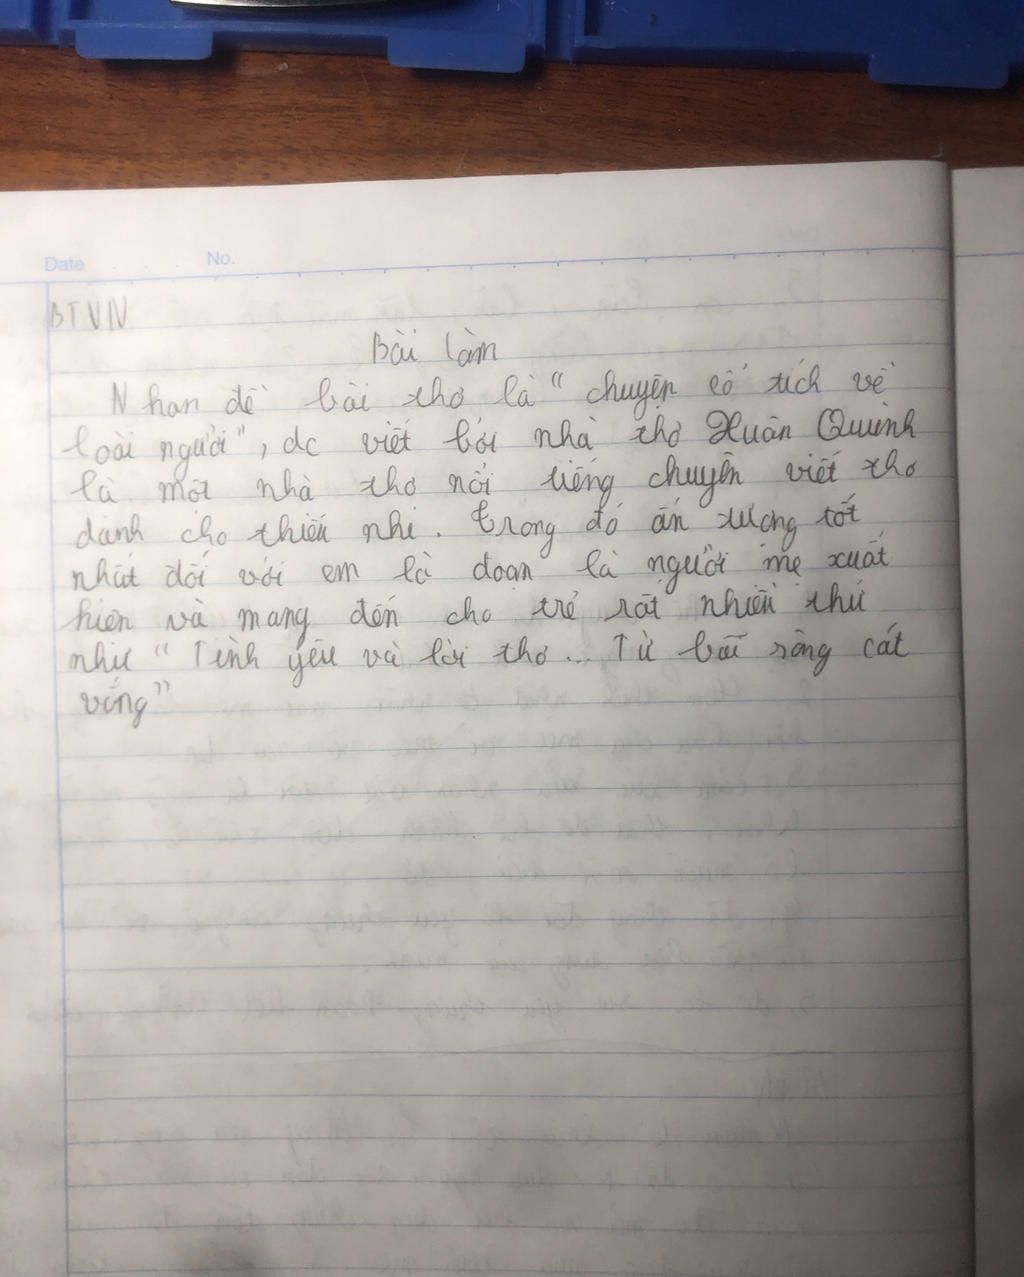 Date No.
BTVN
Bài làm
Nhan đề bài thơ là "chuyện cổ tích về
loài người", dc viết bởi nhà thơ Xuân Quỳnh
là một nhà thơ nổi tiếng chuyên viết thơ
dành cho thiếu nhi. Trong đó ấn tượng tốt
nhất đối với em là đoạn là người mẹ xuất
hiện và mang đến cho trẻ rất nhiều thứ
như "Tình yêu và lời thơ... Từ bãi sông cát
vắng"